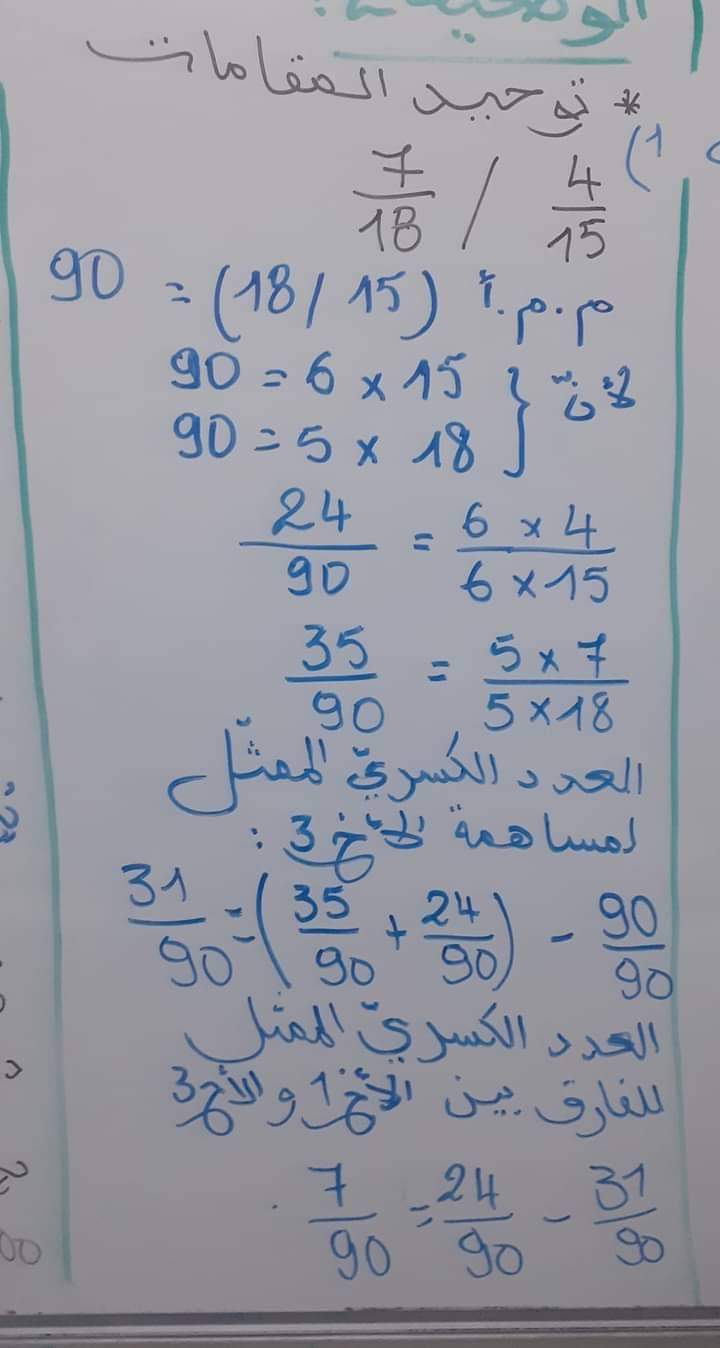 * توحيد المقامات
1) 4/15 / 7/18
م.م.أ (15 / 18) = 90
لأنّ { 15 × 6 = 90
18 × 5 = 90
6 × 4 / 6 × 15 = 24/90
5 × 7 / 5 × 18 = 35/90
العدد الكسريّ الممثّل
لمساهمة الأخ 3 :
90/90 - (24/90 + 35/90) = 31/90
العدد الكسريّ الممثّل
للفارق بين الأخ 1 و الأخ 3
31/90 - 24/90 = 7/90